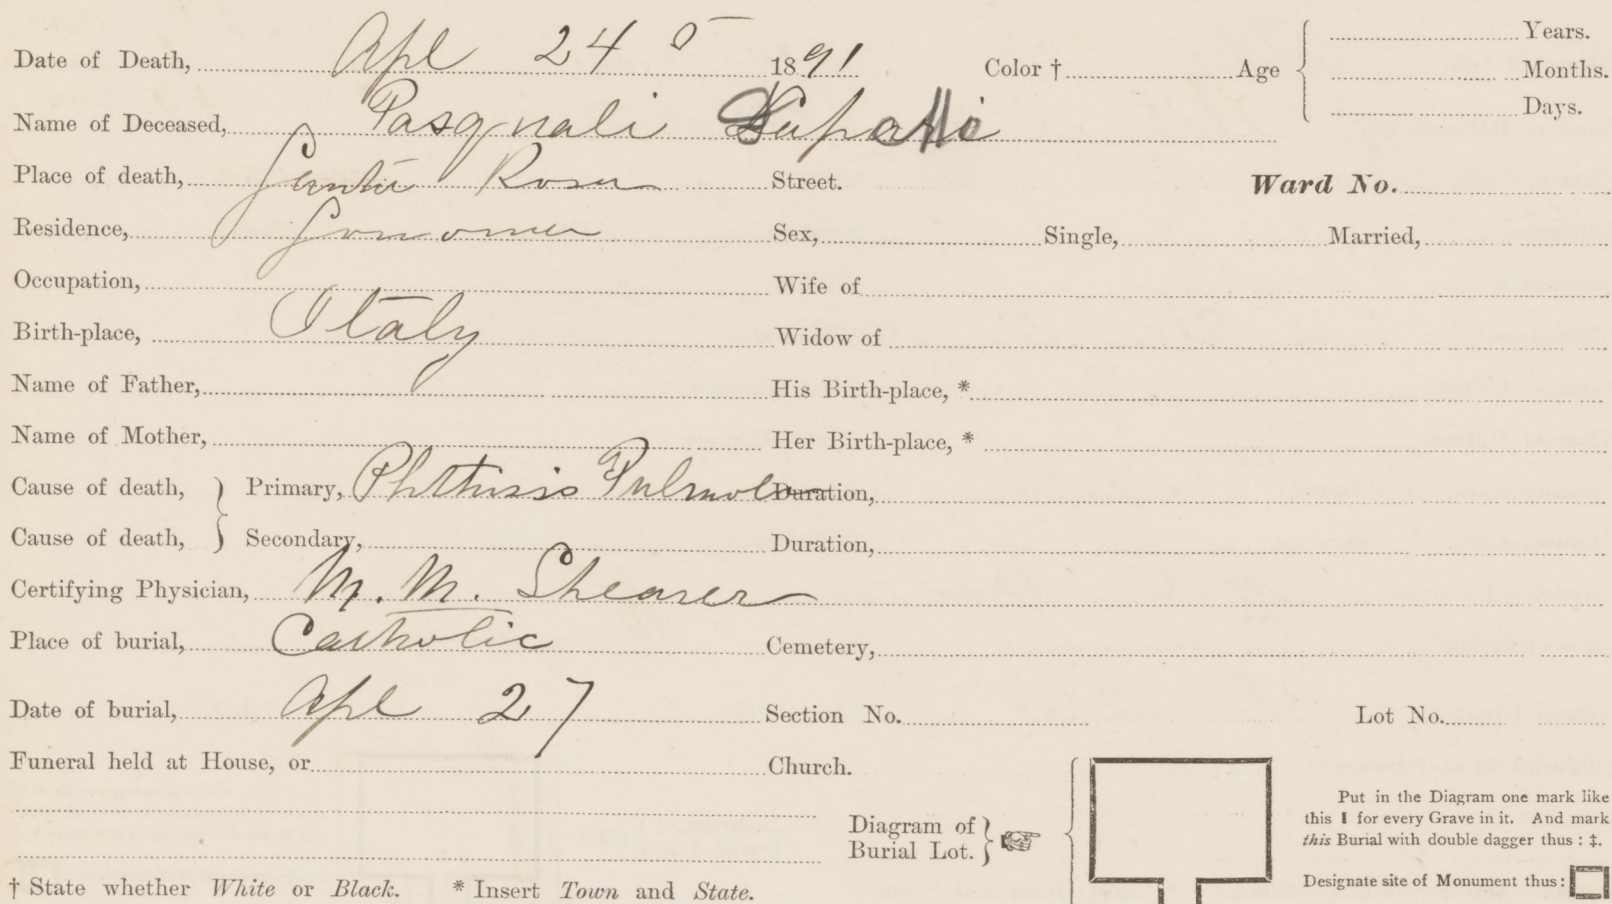 Date of Death, Apl 24 1891 Color † Age Years.
Months.
Days.
Name of Deceased, Pasqnali
Place of death, Santa Rosa Street. Ward No.
Residence, Sonoma Sex, Single, Married,
Occupation, Wife of
Birth-place, Italy Widow of
Name of Father, His Birth-place, *
Name of Mother, Her Birth-place, *
Cause of death, Primary, Phthisis Duration,
Cause of death, Secondary, Duration,
Certifying Physician, M. M. Shearer
Place of burial, Catholic Cemetery,
Date of burial, Apl 27 Section No. Lot No.
Funeral held at House, or Church.
Diagram of
Burial Lot.
Put in the Diagram one mark like
this I for every Grave in it. And mark
this Burial with double dagger thus : ‡.
Designate site of Monument thus :
† State whether White or Black. * Insert Town and State.